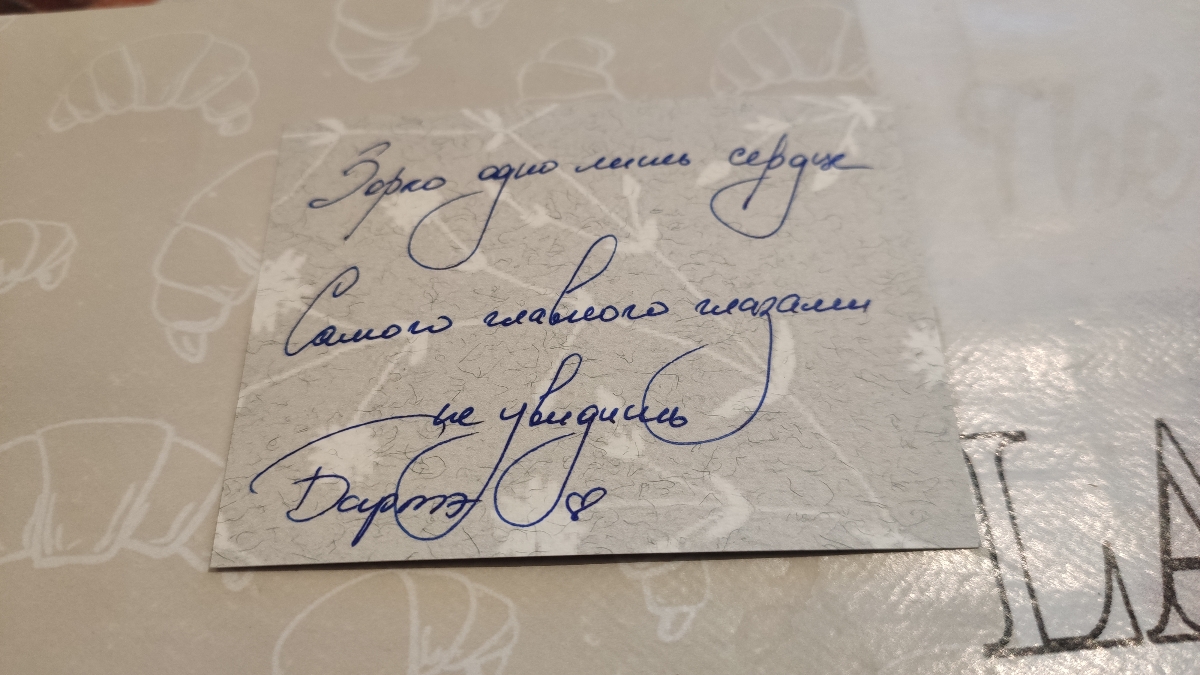 Зорко одно лишь сердце
Самого главного глазами
не увидишь
LA